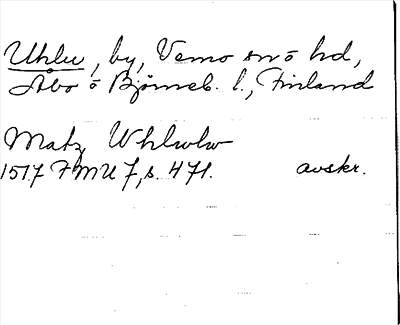 Uhlu, by, Vemo snö hd,
Åbo o Björneb. l., Finland
Matz Whlwlw
1517 FMU 7, s. 471. avskr.